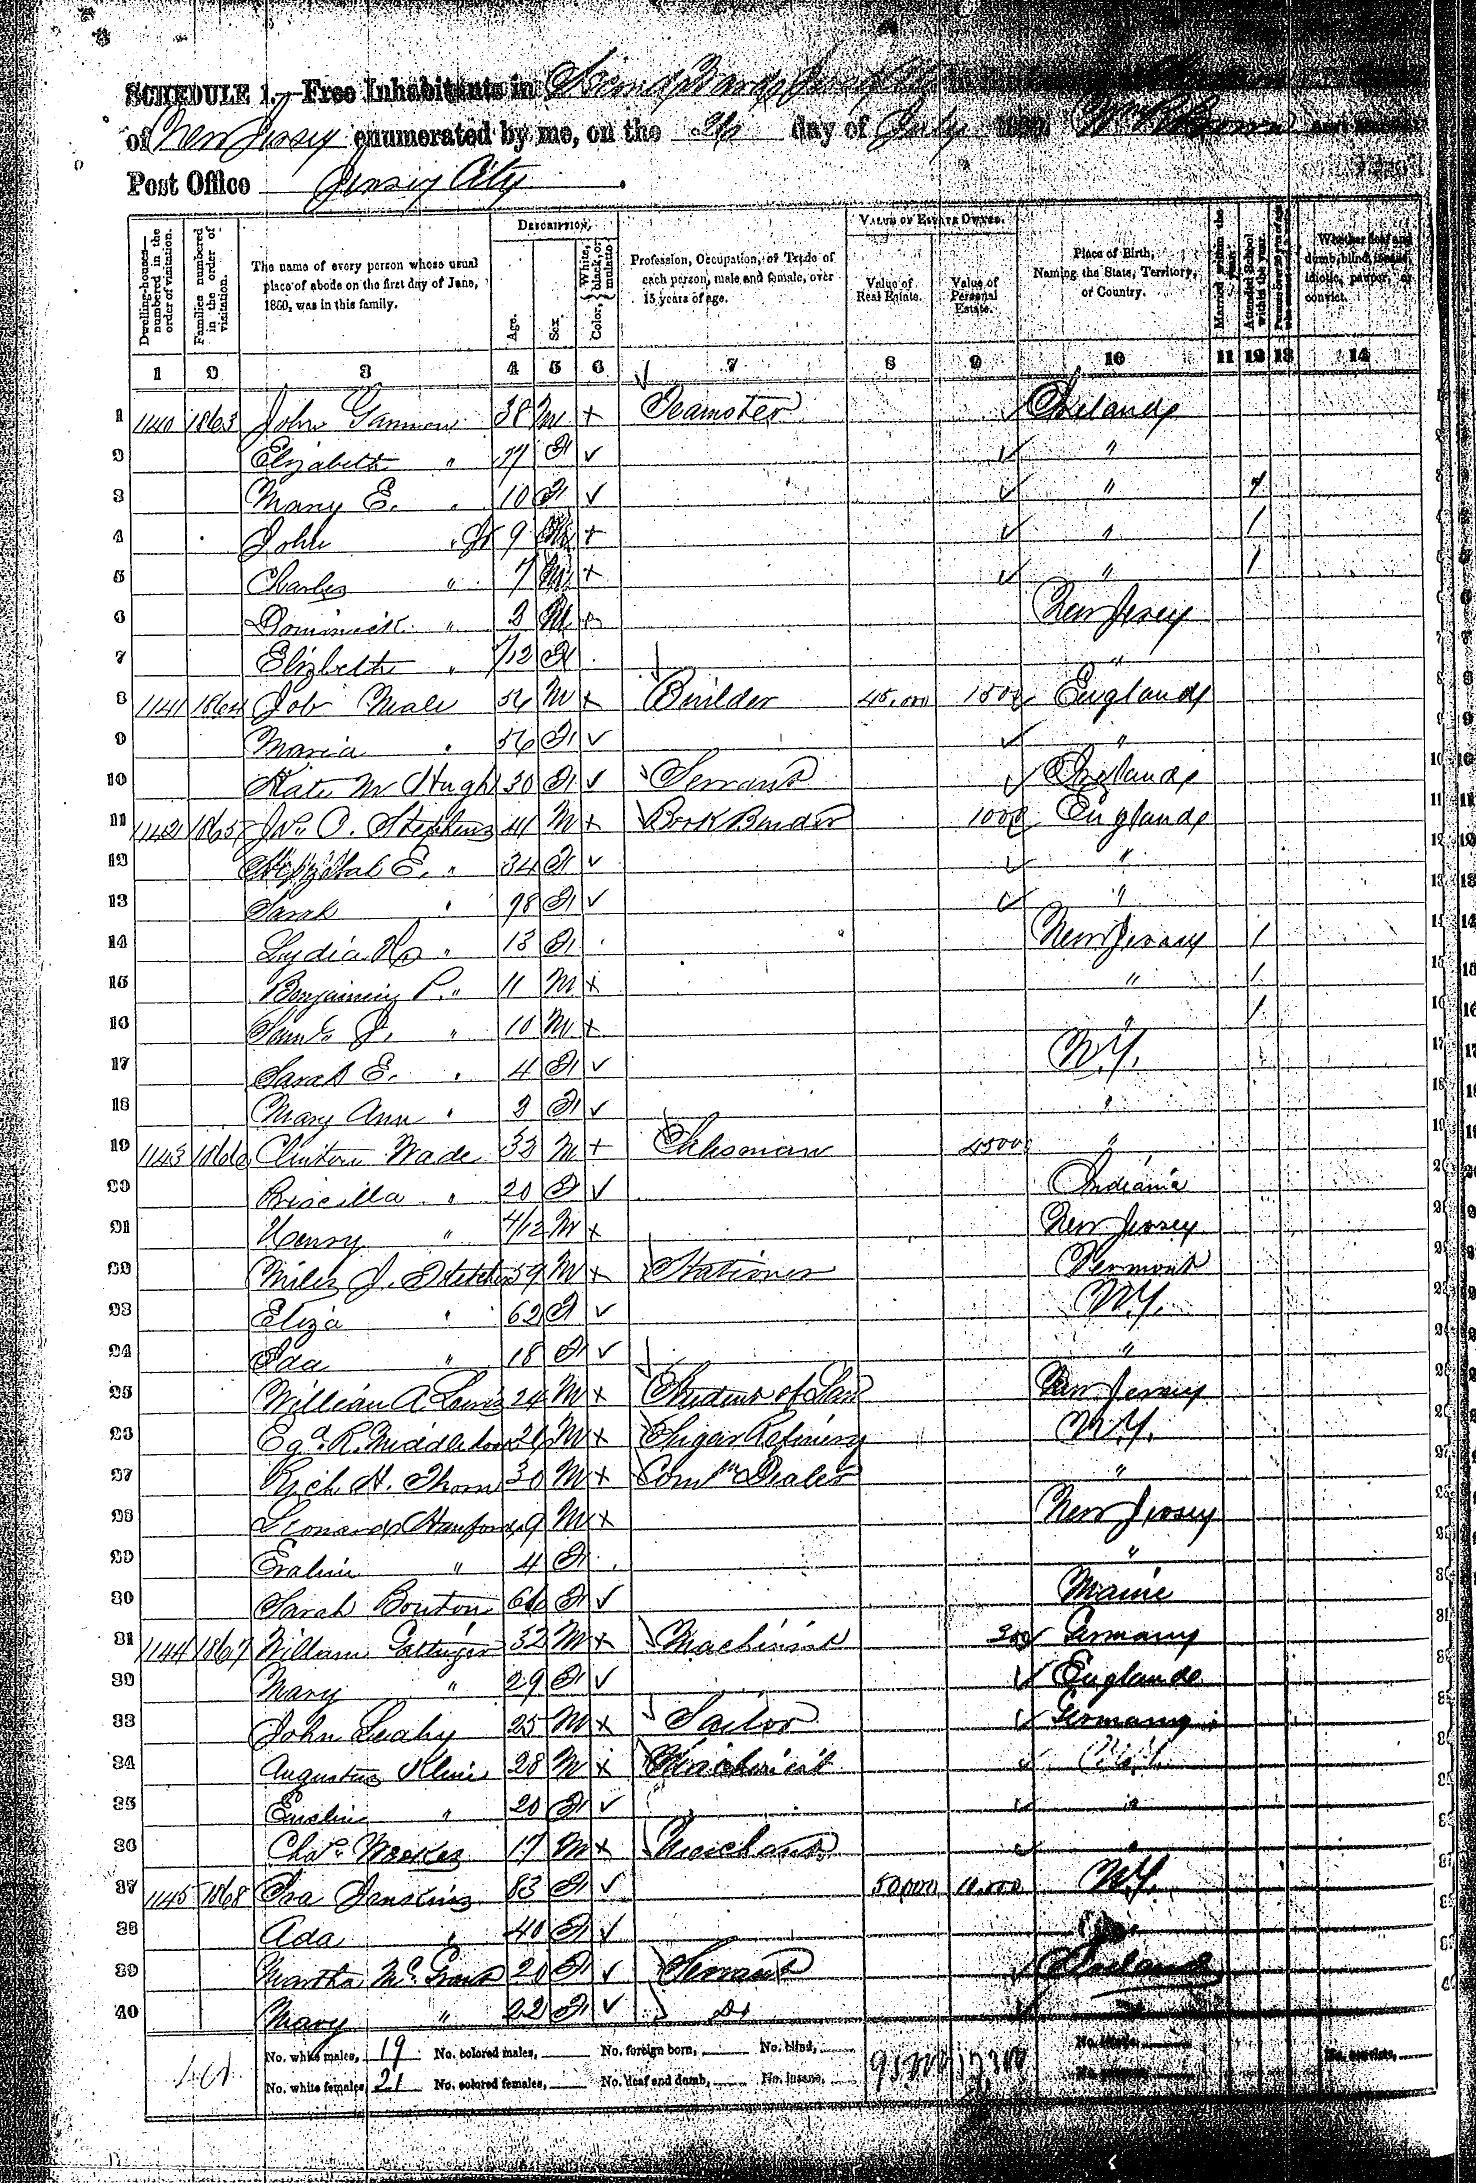 SCHEDULE 1.—Free Inhabitants in Second Ward Jersey
of New Jersey enumerated by me, on the 26 day of July 1860. Wm P Brown
Post Office Jersey City
Dwelling-houses—numbered in the order of visitation.
Families numbered in the order of visitation.
The name of every person whose usual place of abode on the first day of June, 1860, was in this family.
DESCRIPTION.
Age.
Sex
Color, White, black, or mulatto
Profession, Occupation, or Trade of each person, male and female, over 15 years of age.
VALUE OF ESTATE OWNED.
Value of Real Estate.
Value of Personal Estate.
Place of Birth, Naming the State, Territory, or Country.
Married within the year.
Attended School within the year.
Whether deaf and dumb, blind, insane, idiotic, pauper, or convict.
1 2 3 4 5 6 7 8 9 10 11 12 13 14
1 1140 1863 John Gannon 38 M Teamster Ireland
2 Elizabeth " F "
3 Mary E. " 10 F " 1
4 John " Jr 9 M " 1
5 Charles " 7 M " 1
6 Dominick " 3 M New Jersey
7 Elizbeth " /12 F "
8 1141 1864 Job Male 56 M Builder 45,000 1500 England
9 Maria " 56 F "
10 Kate Mc Hugh 30 F Servant Ireland
11 1142 1865 Jno. O. Stephens 41 M Book Binder 1000 England
12 E. " 34 F "
13 Sarah " 78 F "
14 Lydia " 13 F New Jersey 1
15 Benjamin P. " 11 M " 1
16 Saml. J. " 10 M " 1
17 Sarah E. " 4 F N.Y.
18 Mary Ann " 3 F "
19 1143 1866 Clinton Wade 33 M Salesman 4500 "
20 Priscilla " 20 F Indiana
21 Henry " 4/12 M New Jersey
22 Miles J. 59 M Stationer Vermont
23 Eliza " 62 F N.Y.
24 Ida " 18 F "
25 William A. Lewis 24 M Student of Law New Jersey
26 R. Middleton M Sugar Refinery N.Y.
27 Rich H. Thorn 30 M Comm Dealer "
28 Leonard 9 M New Jersey
29 Evalin " 4 F "
30 Sarah Bouton 66 F Maine
31 1144 1867 William 32 M Machinist 300 Germany
32 Mary " 29 F England
33 John Leahy 25 M Tailor Germany
34 Augustus Klein 28 M Machinist
35 " 20 F "
36 Chas. 17 M Merchant "
37 1145 1868 Ira Jenskins 83 F 50,000 10,000 N.Y.
38 Ada " 40 F "
39 Martha Mc Grant 20 F Servant Ireland
40 Mary " 22 F Do "
No. white males, 19 No. colored males, No. foreign born, No. blind,
No. white females, 21 No. colored females, No. deaf and dumb, No. insane,